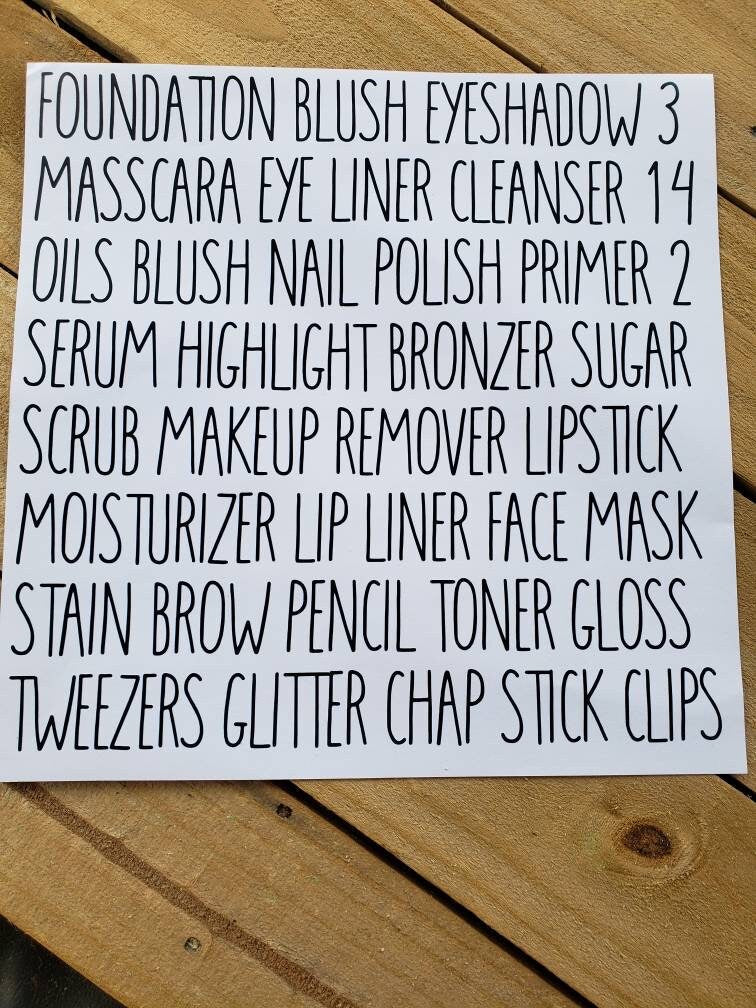 FOUNDATION BLUSH EYESHADOW 3
MASSCARA EYE LINER CLEANSER 14
OILS BLUSH NAIL POLISH PRIMER 2
SERUM HIGHLIGHT BRONZER SUGAR
SCRUB MAKEUP REMOVER LIPSTICK
MOISTURIZER LIP LINER FACE MASK
STAIN BROW PENCIL TONER GLOSS
TWEEZERS GLITTER CHAP STICK CLIPS